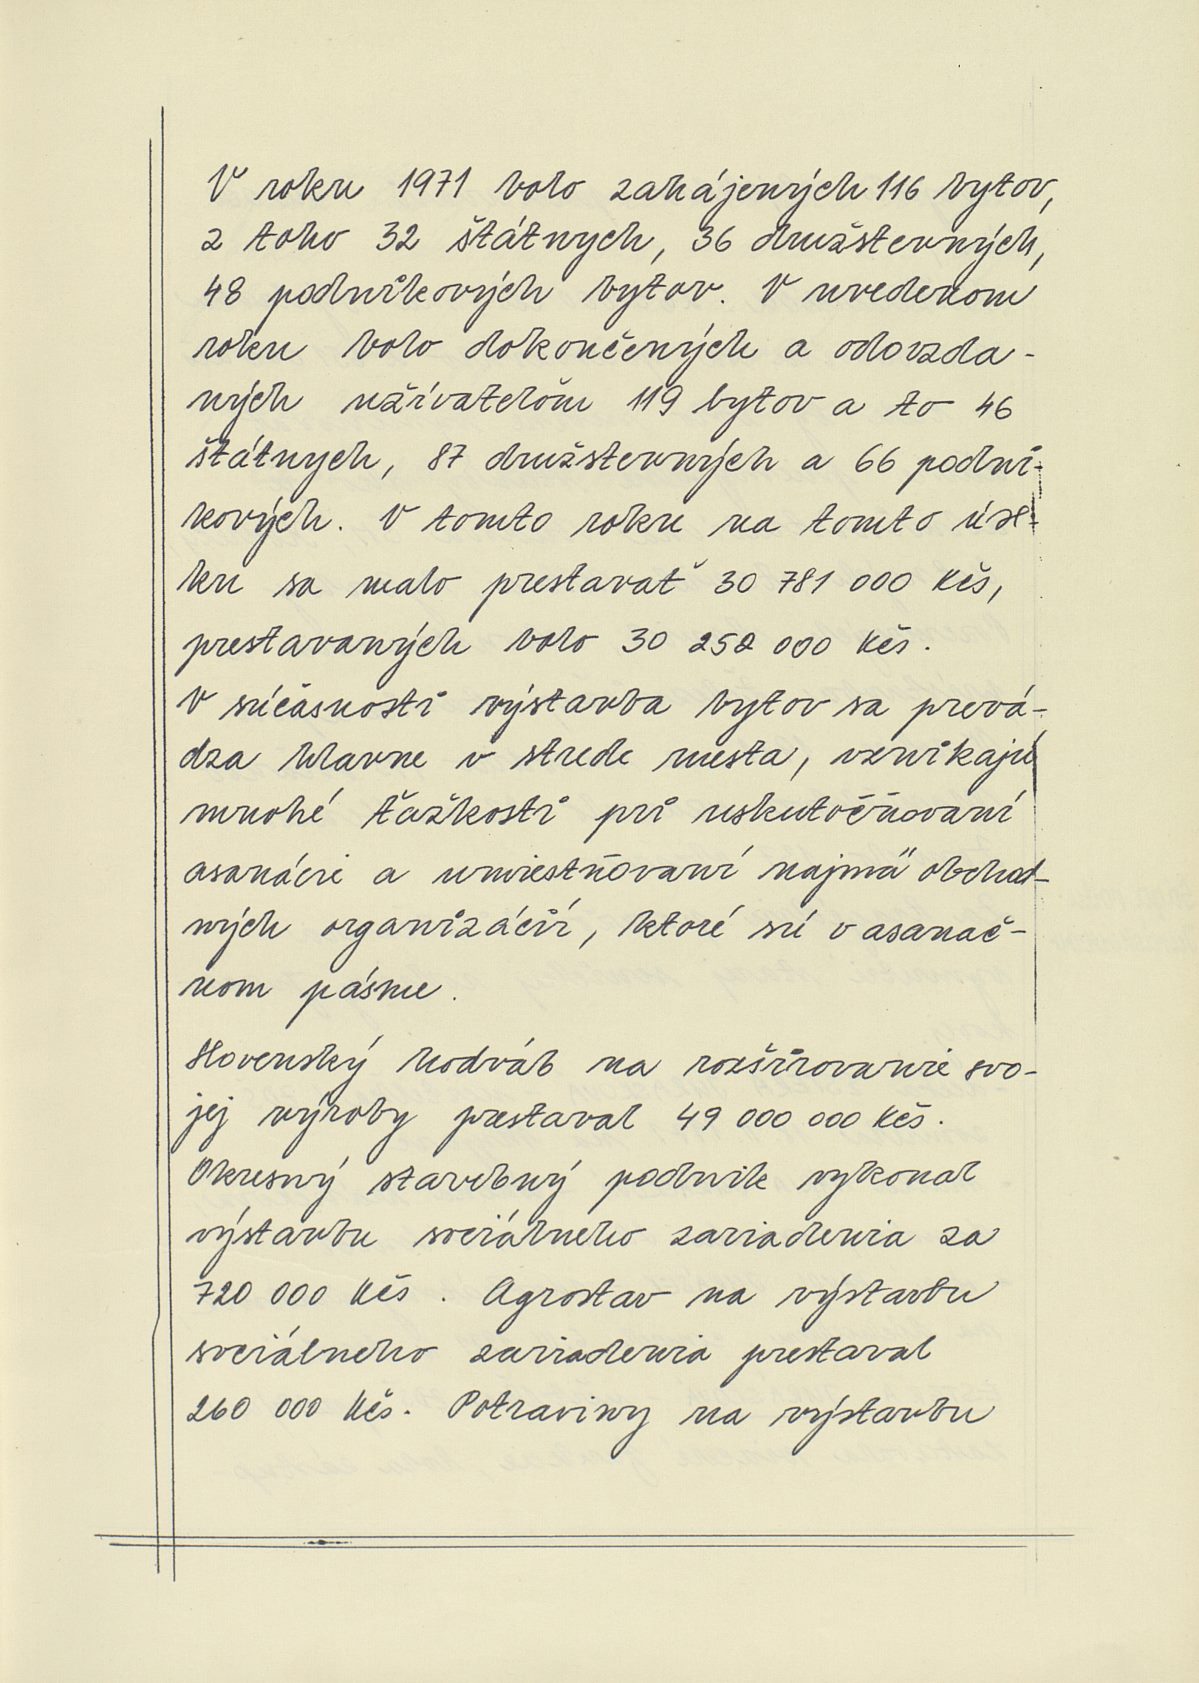 V roku 1971 bolo zahájených 116 bytov,
z toho 32 štátnych, 36 družstevných,
48 podnikových bytov. V uvedenom
roku bolo dokončených a odovzda-
ných užívateľom 119 bytov a to 46
štátnych, 87 družstevných a 66 podni-
kových. V tomto roku na tomto úse-
ku sa malo prestavať 30 781 000 Kčs,
prestavaných bolo 30 252 000 Kčs.
V súčasnosti výstavba bytov sa prevá-
dza hlavne v strede mesta, vznikajú
mnohé ťažkosti pri uskutočňovaní
asanácie a umiestňovaní najmä obchod-
ných organizácií, ktoré sú v asanač-
nom pásme.
Slovenský hodváb na rozširovanie svo-
jej výroby prestaval 49 000 000 Kčs.
Okresný stavebný podnik vykonal
výstavbu sociálneho zariadenia za
720 000 Kčs. Agrostav na výstavbu
sociálneho zariadenia prestaval
260 000 Kčs. Potraviny na výstavbu